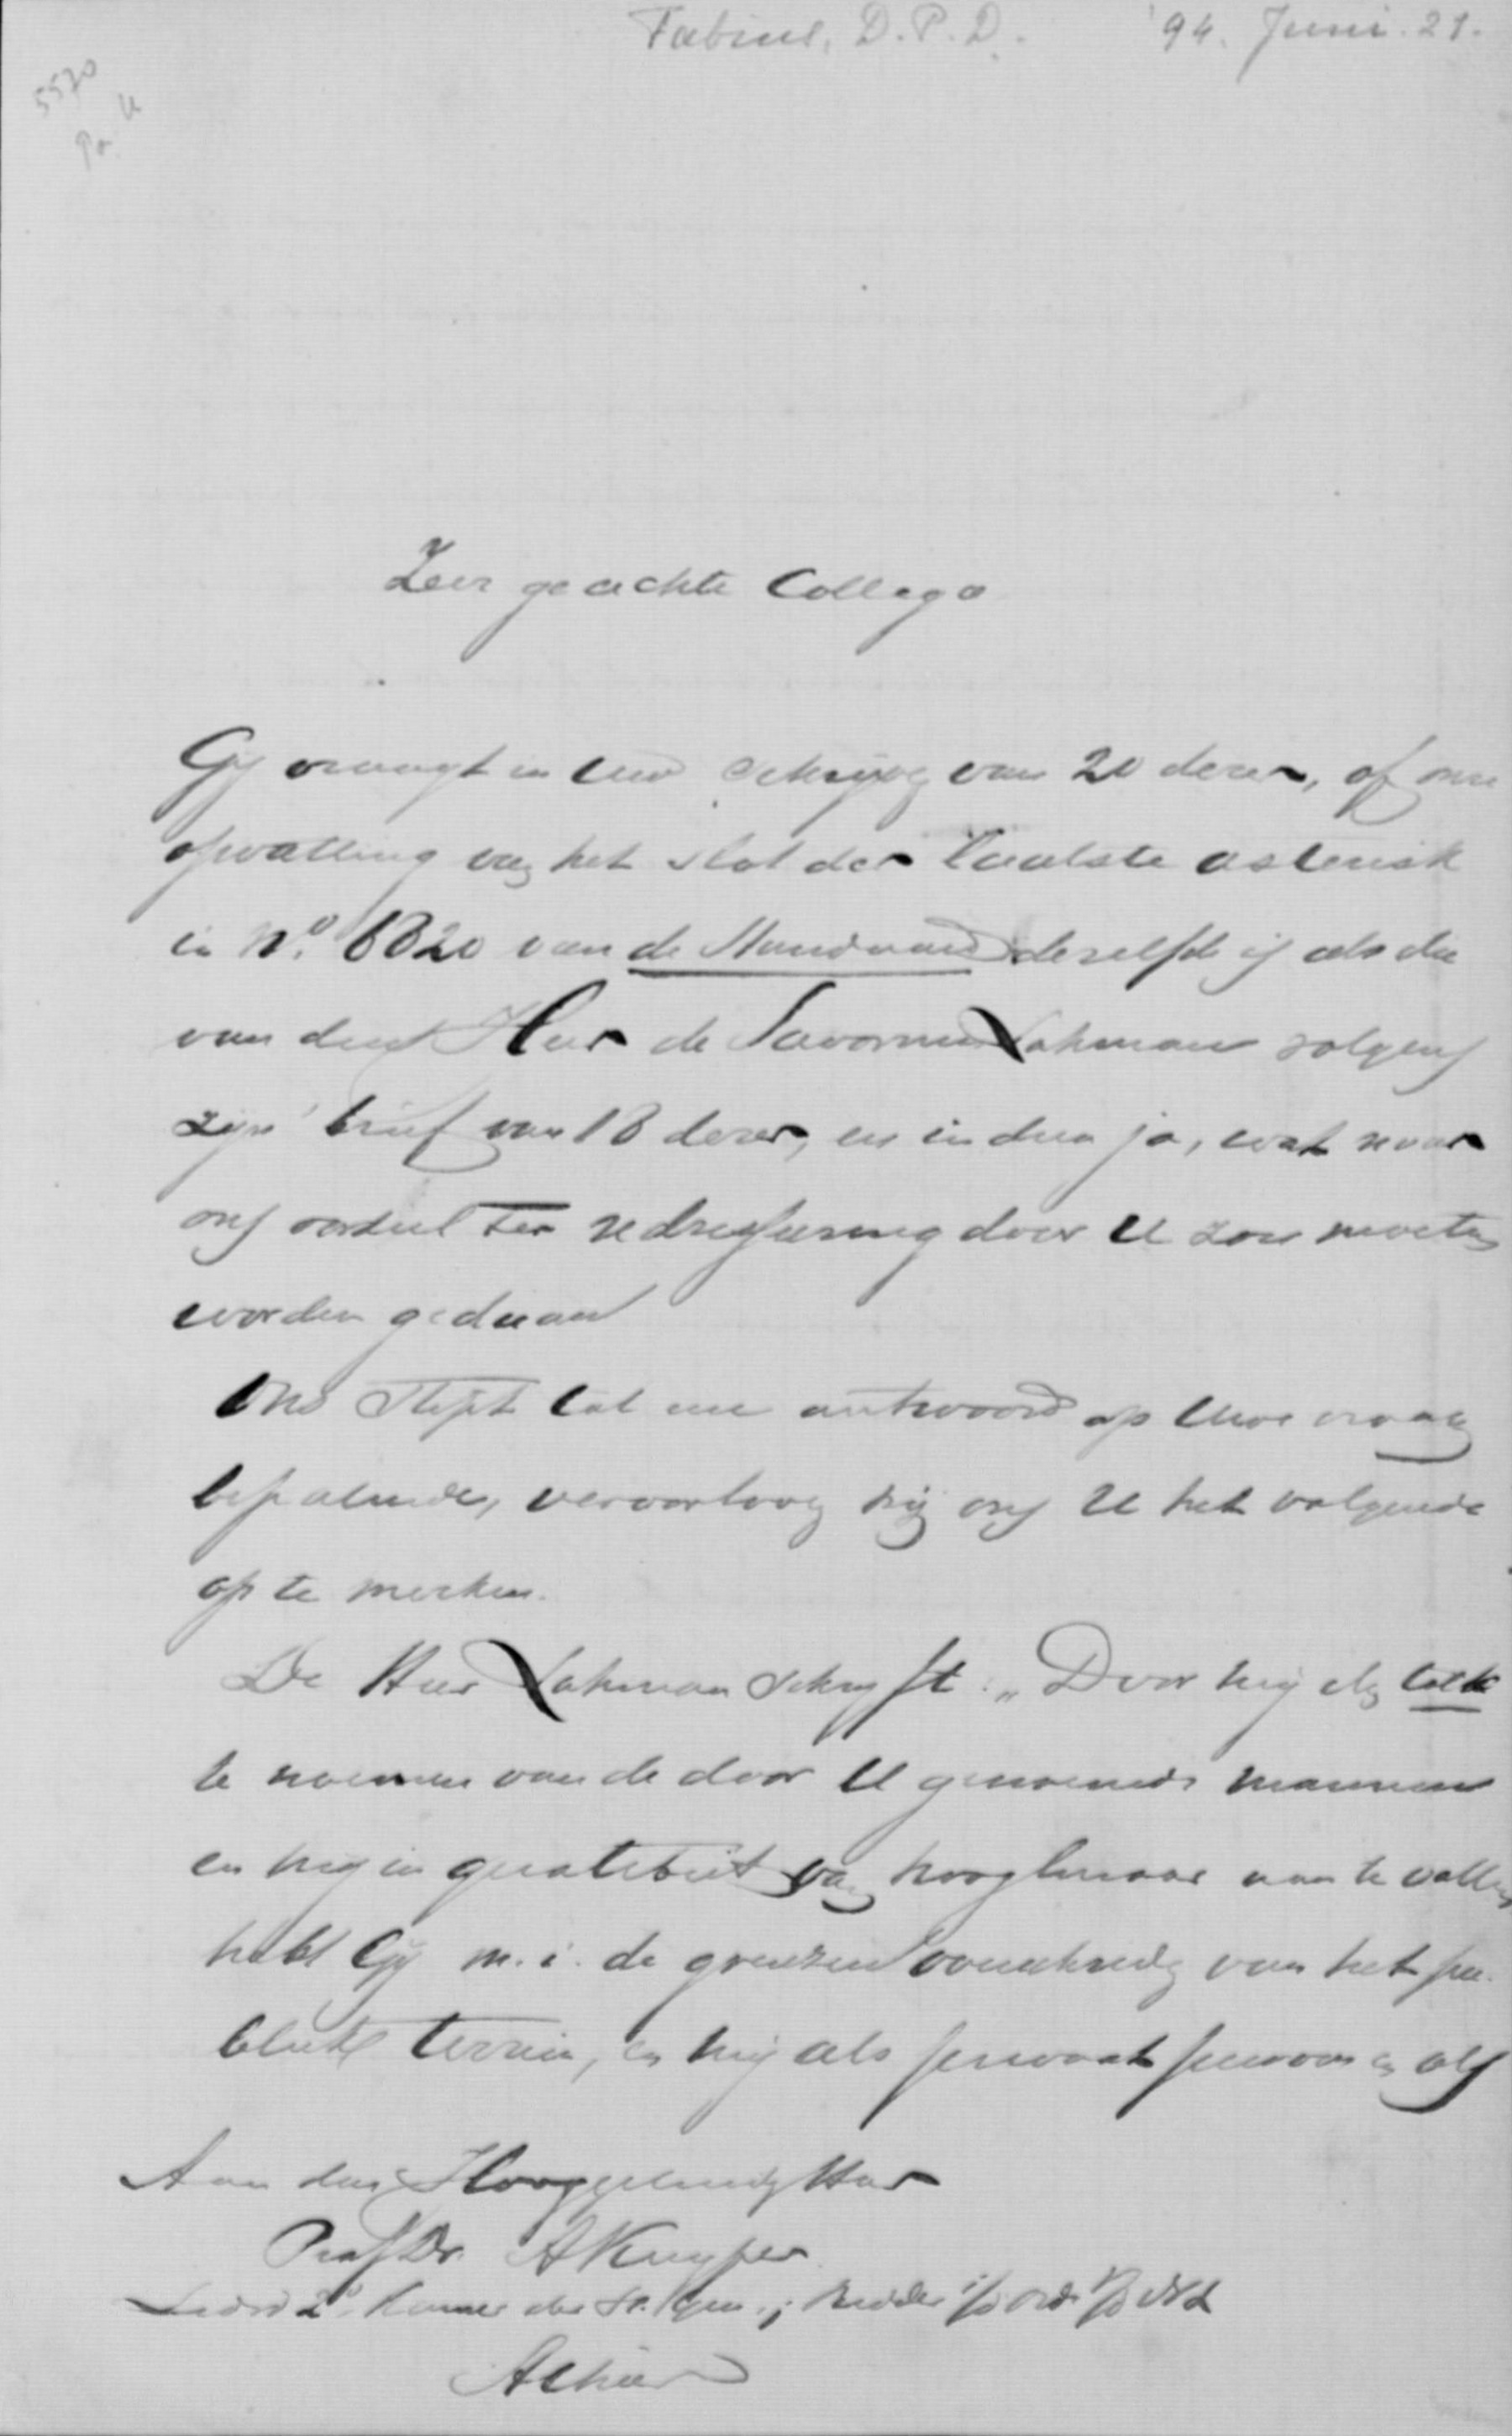 Fabius, D.P.D. '94. Juni. 21.
5570
Zeer geachte Collega
Gij vraagt in Uw schrijv̄g van 20 dezer, of onze
opvatting van het slot der laatste asterisk
in No. 6820 van de Standaard dezelfde is als die
van den Heer de Savornin Lohman volgens
zijn brief van 18 dezer, en indien ja, wat naar
ons oordeel ter redresseering door U zou moeten
worden gedaan
Ons stipt tot een antwoord op Uwe vraag
bepalende, veroorloov̄g wij ons U het volgende
op te merken.
De Heer Lohman schrijft: „Door mij als tolk
te noemen van de door U genoemde mannen
en mij in qualiteit van hoogleeraar aan te vallen
hebt Gij m.i. de grenzen overschreden van het pu-
bliek terrein, en mij als privaat persoon en als
Aan den Hooggeleerden Heer
Prof Dr. A Kuyper
Lid v/d 2e Kamer der St. Gen., Ridder i/d Orde v/d N L
Alhier